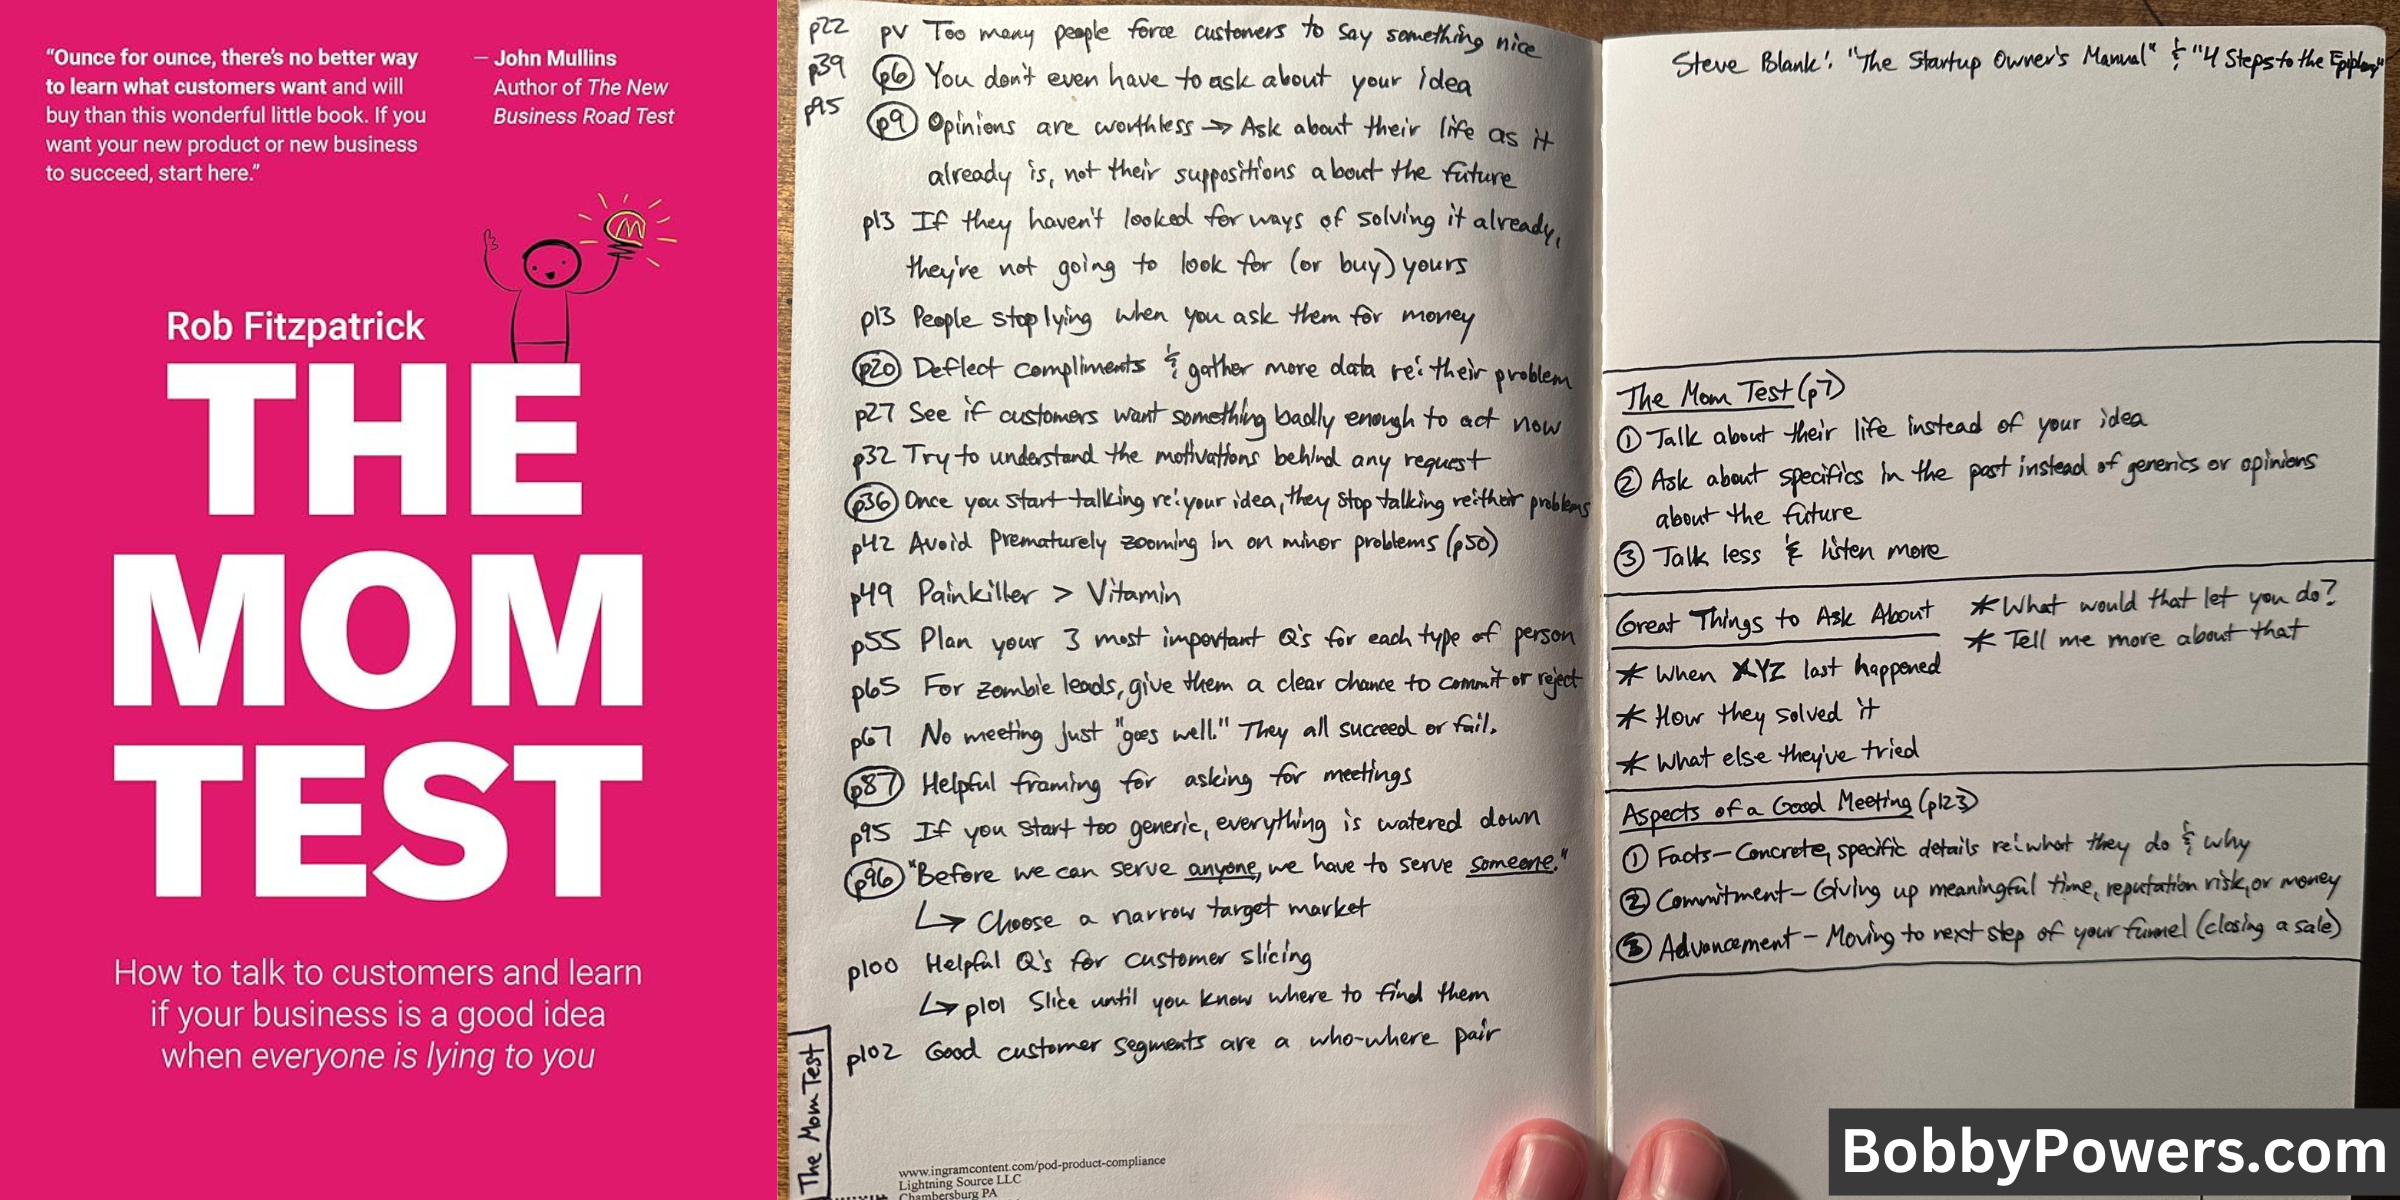 “Ounce for ounce, there’s no better way
to learn what customers want and will
buy than this wonderful little book. If you
want your new product or new business
to succeed, start here.”
— John Mullins
Author of The New
Business Road Test
M
Rob Fitzpatrick
THE
MOM
TEST
How to talk to customers and learn
if your business is a good idea
when everyone is lying to you
p22
p39
p95
pv Too many people force customers to say something nice
p6 You don't even have to ask about your idea
p9 Opinions are worthless → Ask about their life as it
already is, not their suppositions about the future
p13 If they haven't looked for ways of solving it already,
they're not going to look for (or buy) yours
p13 People stop lying when you ask them for money
p20 Deflect compliments & gather more data re: their problem
p27 See if customers want something badly enough to act now
p32 Try to understand the motivations behind any request
p36 Once you start talking re: your idea, they stop talking re: their problems
p42 Avoid prematurely zooming in on minor problems (p50)
p49 Painkiller > Vitamin
p55 Plan your 3 most important Q's for each type of person
p65 For zombie leads, give them a clear chance to commit or reject
p67 No meeting just "goes well." They all succeed or fail.
p87 Helpful framing for asking for meetings
p95 If you start too generic, everything is watered down
p96 "Before we can serve anyone, we have to serve someone."
↳ Choose a narrow target market
p100 Helpful Q's for customer slicing
↳ p101 Slice until you know where to find them
p102 Good customer segments are a who-where pair
The Mom Test
www.ingramcontent.com/pod-product-compliance
Lightning Source LLC
Chambersburg PA
Steve Blank: "The Startup Owner's Manual" & "4 Steps to the Epiphany"
The Mom Test (p7)
① Talk about their life instead of your idea
② Ask about specifics in the past instead of generics or opinions
about the future
③ Talk less & listen more
Great Things to Ask About
* When XYZ last happened
* How they solved it
* What else they've tried
* What would that let you do?
* Tell me more about that
Aspects of a Good Meeting (p123)
① Facts – Concrete, specific details re: what they do & why
② Commitment – Giving up meaningful time, reputation risk, or money
③ Advancement – Moving to next step of your funnel (closing a sale)
BobbyPowers.com